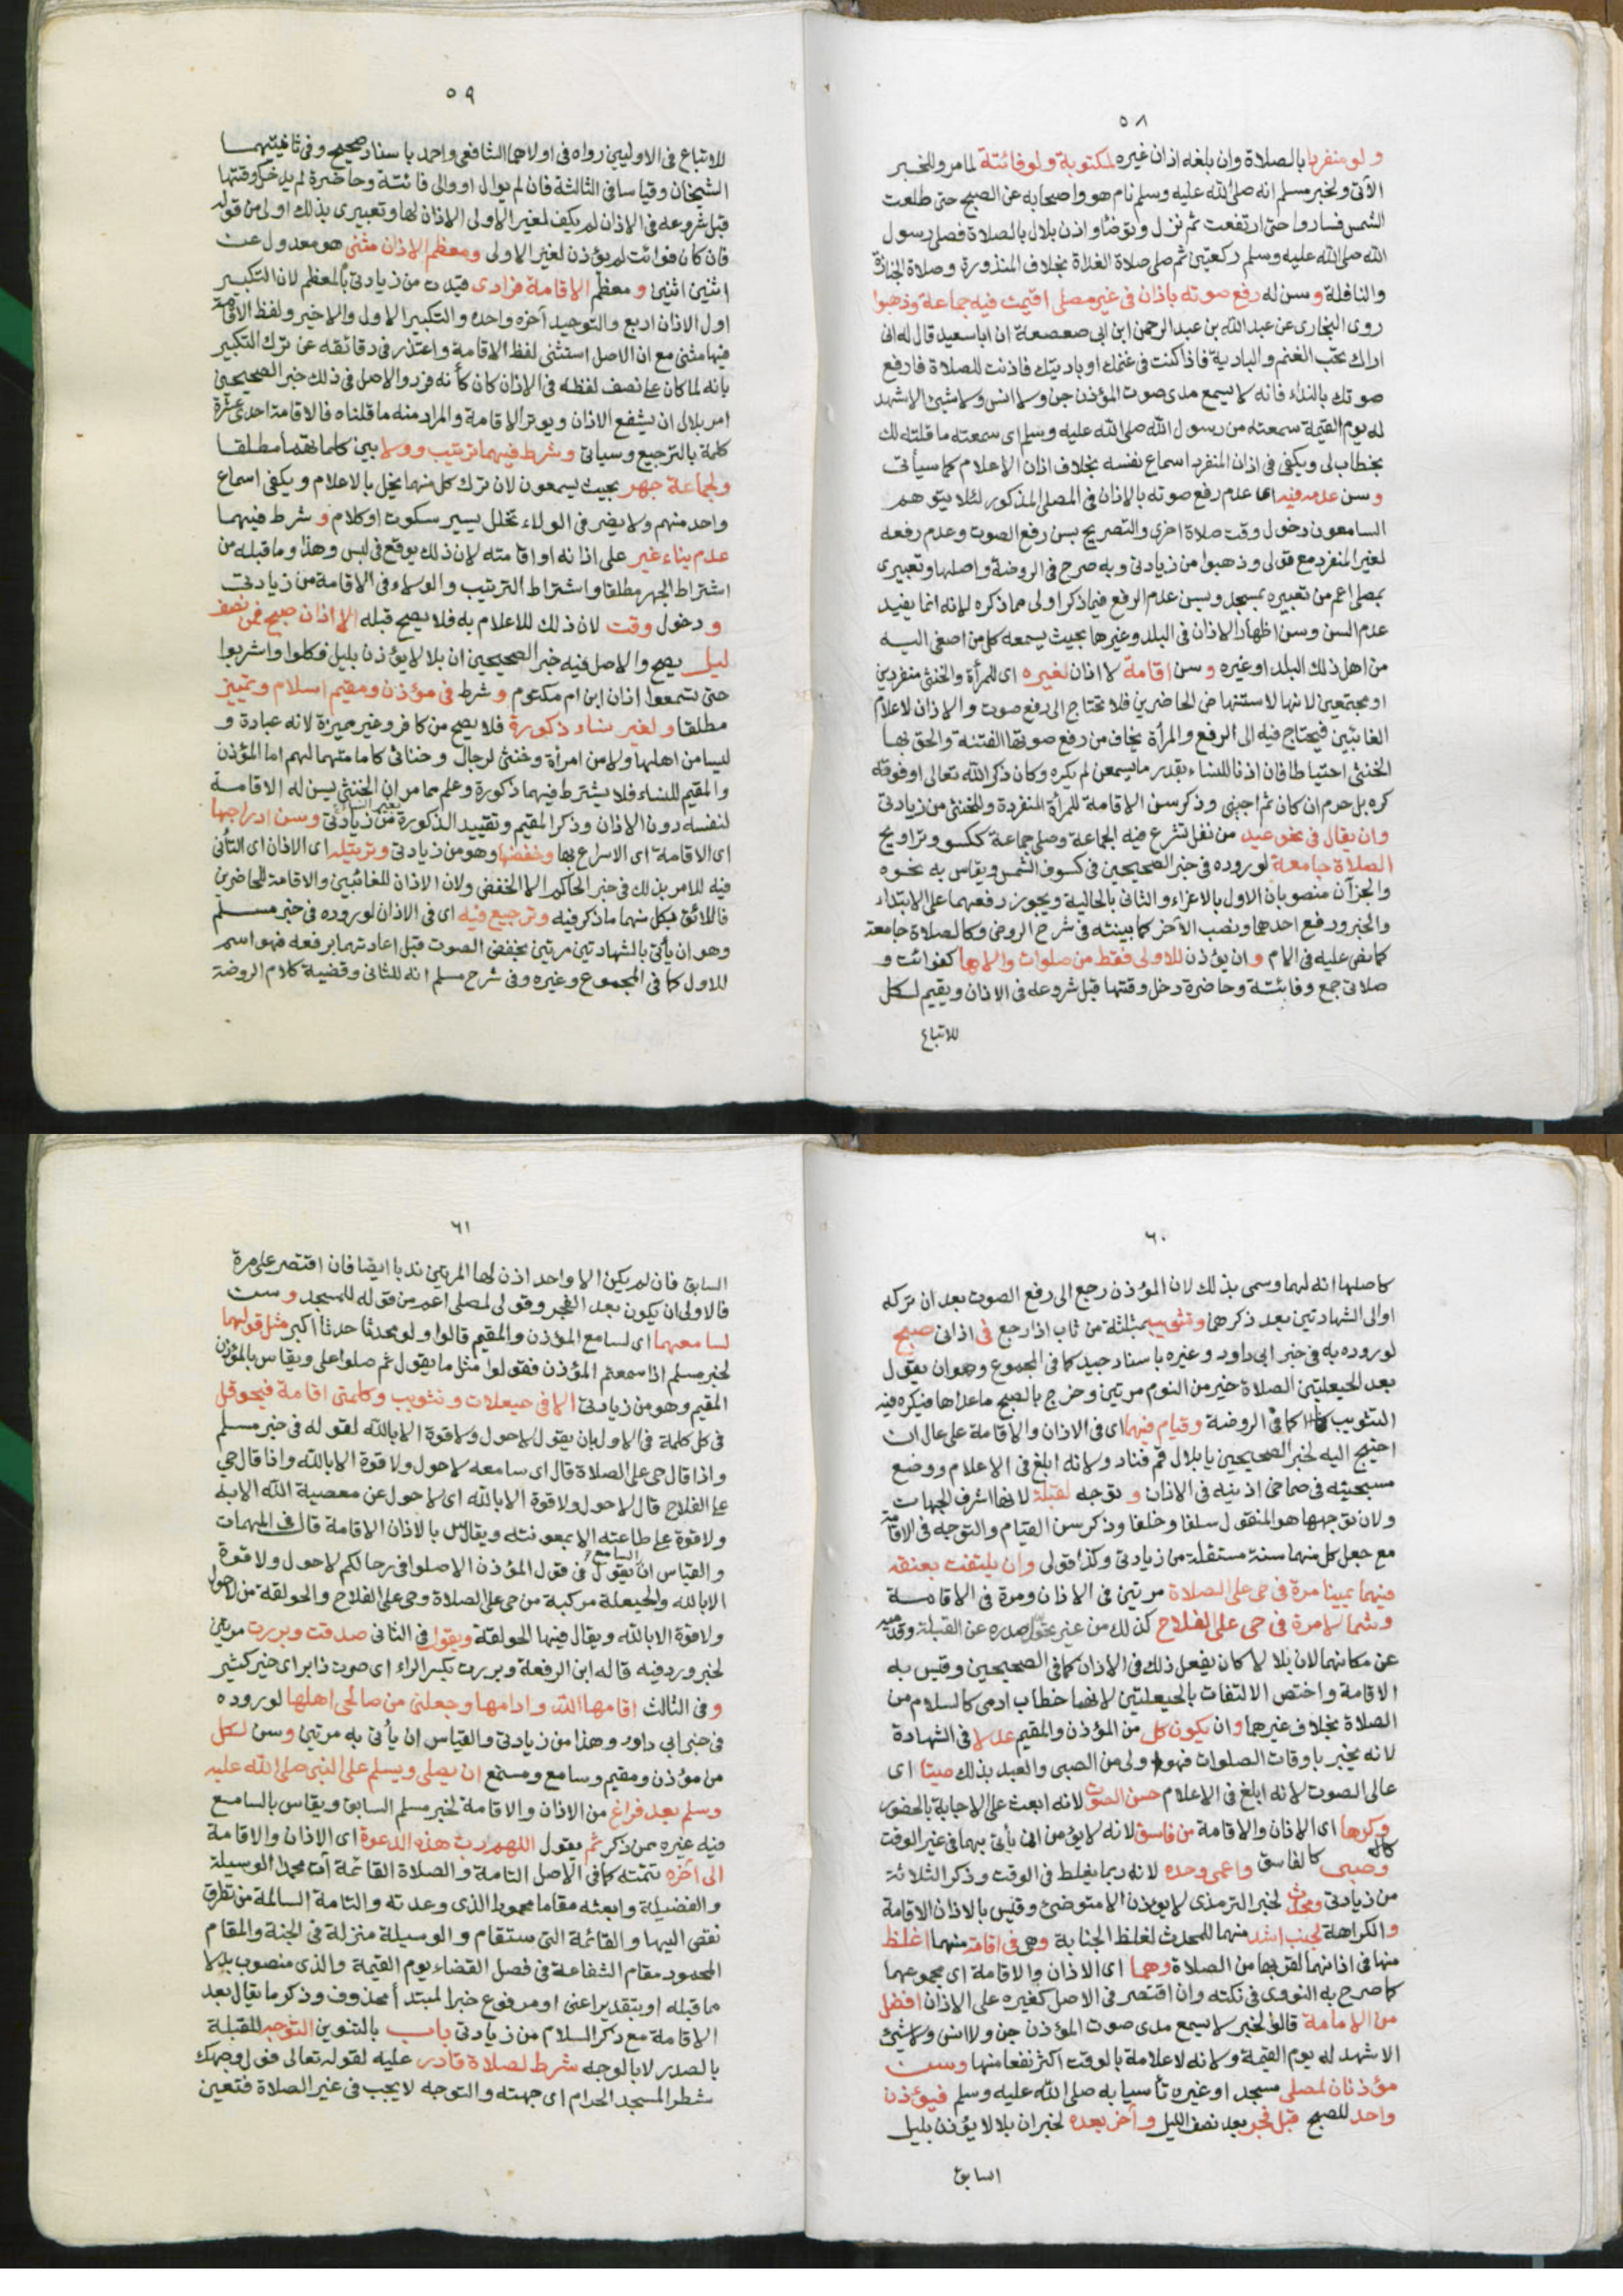 ٥٨
ولو منفردا بالصلاة وان بلغه اذان غيره لمكتوبة ولو فائتة لما مر وللخبر
الآتى ولخبر مسلم انه صلى الله عليه وسلم نام هو واصحابه عن الصبح حتى طلعت
الشمس فساروا حتى ارتفعت ثم نزل وتوضأ واذن بلال بالصلاة فصلى رسول
الله صلى الله عليه وسلم ركعتين ثم صلى صلاة الغداة بخلاف المنذورة وصلاة الجنازة
والنافلة وسن له رفع صوته باذان فى غير مصلى اقيمت فيه جماعة وذهبوا
روى البخارى عن عبد الله بن عبد الرحمن ابن ابى صعصعة ان ابا سعيد قال له انى
اراك تحب الغنم والبادية فاذا كنت فى غنمك او باديتك فاذنت للصلاة فارفع
صوتك بالنداء فانه لا يسمع مدى صوت المؤذن جن ولا انس ولا شئ الا شهد
له يوم القيمة سمعته من رسول الله صلى الله عليه وسلم اى سمعته ما قلته لك
بخطاب لى ويكفى فى اذان المنفرد اسماع نفسه بخلاف اذان الاعلام كما سيأتى
وسن عدمه فيه اى عدم رفع صوته بالاذان فى المصلى المذكور لئلا يتوهم
السامعون دخول وقت صلاة اخرى والتصريح بسن رفع الصوت وعدم رفعه
لغير المنفرد مع قولى وذهبوا من زيادتى وبه صرح فى الروضة واصلها وتعبيرى
بمصلى اعم من تعبيره بمسجد وبسن عدم الرفع فيما ذكر اولى مما ذكره لانه انما يفيد
عدم السن وسن اظهار الاذان فى البلد وغيرها بحيث يسمعه كل من اصغى اليه
من اهل ذلك البلد او غيره وسن اقامة لا اذان لغيره اى للمرأة والخنثى منفردين
او مجتمعين لانها لاستنهاض الحاضرين فلا تحتاج الى رفع صوت والاذان لاعلام
الغائبين فيحتاج فيه الى الرفع والمرأة يخاف من رفع صوتها الفتنة والحق بها
الخنثى احتياطا فان اذنا للنساء بقدر ما يسمعن لم يكره وكان ذكر الله تعالى او فوقه
كره بل حرم ان كان ثم اجنبى وذكر سن الاقامة للمرأة المنفردة وللخنثى من زيادتى
وان يقال فى نحو عيد من نفل تشرع فيه الجماعة وصلى جماعة ككسوف وتراويح
الصلاة جامعة لوروده فى خبر الصحيحين فى كسوف الشمس ويقاس به نحوه
والجزآن منصوبان الاول بالاغراء والثانى بالحالية ويجوز رفعهما على الابتداء
والخبر ورفع احدهما ونصب الآخر كما بينته فى شرح الروض وكالصلاة جامعة
كما نص عليه فى الام وان يؤذن للاولى فقط من صلوات والاها كفوائت و
صلاتى جمع وفائتة وحاضرة دخل وقتها قبل شروعه فى الاذان ويقيم لكل
للاتباع
٥٩
للاتباع فى الاوليين رواه فى اولاهما الشافعى واحمد باسناد صحيح وفى ثانيتهما
الشيخان وقياسا فى الثالثة فان لم يوال او والى فائتة وحاضرة لم يدخل وقتها
قبل شروعه فى الاذان لم يكف لغير الاولى الاذان لها وتعبيرى بذلك اولى من قوله
فان كان فوائت لم يؤذن لغير الاولى ومعظم الاذان مثنى هو معدول عن
اثنين اثنين ومعظم الاقامة فرادى قيدت من زيادتى بالمعظم لان التكبير
اول الاذان اربع والتوحيد آخره واحدة والتكبير الاول والاخير ولفظ الاقامة
فيها مثنى مع ان الاصل استثنى لفظ الاقامة واعتذر فى دقائقه عن ترك التكبير
بانه لما كان على نصف لفظه فى الاذان كان كأنه فرد والاصل فى ذلك خبر الصحيحين
امر بلال ان يشفع الاذان ويوتر الاقامة والمراد منه ما قلناه فالاقامة احدى عشرة
كلمة بالترجيع وسياتى وشرط فيهما ترتيب وولا بين كلماتهما مطلقا
ولجماعة جهر بحيث يسمعون لان ترك كل منهما يخل بالاعلام ويكفى اسماع
واحد منهم ولا يضر فى الولاء تخلل يسير سكوت او كلام وشرط فيهما
عدم بناء غير على اذانه او اقامته لان ذلك يوقع فى لبس وهذا وما قبله من
اشتراط الجهر مطلقا واشتراط الترتيب والولاء فى الاقامة من زيادتى
ودخول وقت لان ذلك للاعلام به فلا يصح قبله الا اذان صبح فمن نصف
ليل يصح والاصل فيه خبر الصحيحين ان بلالا يؤذن بليل فكلوا واشربوا
حتى تسمعوا اذان ابن ام مكتوم وشرط فى مؤذن ومقيم اسلام وتمييز
مطلقا ولغير نساء ذكورة فلا يصح من كافر وغير مميز لانه عبادة و
ليسا من اهلها ولا من امرأة وخنثى لرجال وخناثى كامامتهما لهم اما المؤذن
والمقيم للنساء فلا يشترط فيهما ذكورة وعلم مما مر ان الخنثى يسن له الاقامة
لنفسه دون الاذان وذكر المقيم وتقييد الذكورة بغير النساء من زيادتى وسن ادراجها
اى الاقامة اى الاسراع بها وخفضها وهو من زيادتى وترتيله اى الاذان اى التأنى
فيه للامر بذلك فى خبر الحاكم الا الخفض ولان الاذان للغائبين والاقامة للحاضرين
فاللائق بكل منهما ما ذكر فيه وترجيع فيه اى فى الاذان لوروده فى خبر مسلم
وهو ان يأتى بالشهادتين مرتين بخفض الصوت قبل اعادتهما برفعه فهو اسم
للاول كما فى المجموع وغيره وفى شرح مسلم انه للثانى وقضية كلام الروضة
٦٠
كاصلها انه لهما وسمى بذلك لان المؤذن رجع الى رفع الصوت بعد ان تركه
او الى الشهادتين بعد ذكرهما وتثويب بمثلثة من ثاب اذا رجع فى اذانى صبح
لوروده به فى خبر ابى داود وغيره باسناد جيد كما فى المجموع وهو ان يقول
بعد الحيعلتين الصلاة خير من النوم مرتين وخرج بالصبح ما عداها فيكره فيه
التثويب كما فى الروضة وقيام فيهما اى فى الاذان والاقامة على عال ان
احتيج اليه لخبر الصحيحين يا بلال قم فناد ولانه ابلغ فى الاعلام ووضع
مسبحتيه فى صماخى اذنيه فى الاذان وتوجه لقبلة لانها اشرف الجهات
ولان توجهها هو المنقول سلفا وخلفا وذكر سن القيام والتوجه فى الاقامة
مع جعل كل منهما سنة مستقلة من زيادتى وكذا قولى وان يلتفت بعنقه
فيهما يمينا مرة فى حى على الصلاة مرتين فى الاذان ومرة فى الاقامة
وشمالا مرة فى حى على الفلاح كذلك من غير تحول صدره عن القبلة وقدميه
عن مكانهما لان بلالا كان يفعل ذلك فى الاذان كما فى الصحيحين وقيس به
الاقامة واختص الالتفات بالحيعلتين لانهما خطاب ادمى كالسلام من
الصلاة بخلاف غيرهما وان يكون كل من المؤذن والمقيم عدلا فى الشهادة
لانه يخبر باوقات الصلوات فهو اولى من الصبى والعبد بذلك صيتا اى
عالى الصوت لانه ابلغ فى الاعلام حسن الصوت لانه ابعث على الاجابة بالحضور
وكرها اى الاذان والاقامة من فاسق لانه لا يؤمن ان يأتى بهما فى غير الوقت
وصبى كالفاسق واعمى وحده لانه ربما يغلط فى الوقت وذكر الثلاثة
من زيادتى ومحدث لخبر الترمذى لا يؤذن الا متوضئ وقيس بالاذان الاقامة
والكراهة لجنب اشد منهما للمحدث لغلظ الجنابة وهى فى اقامة منهما اغلظ
منها فى اذانهما لقربها من الصلاة وهما اى الاذان والاقامة اى مجموعهما
كما صرح به النووى فى نكته وان اقتصر فى الاصل كغيره على الاذان افضل
من الامامة قالوا لخبر لا يسمع مدى صوت المؤذن جن ولا انس ولا شئ
الا شهد له يوم القيمة ولانه لاعلامه بالوقت اكثر نفعا منها وسن
مؤذنان لمصلى مسجد او غيره تأسيا به صلى الله عليه وسلم فيؤذن
واحد للصبح قبل فجر بعد نصف الليل وآخر بعده لخبر ان بلالا يؤذن بليل
السابق
٦١
السابق فان لم يكن الا واحد اذن لها المرتين ندبا ايضا فان اقتصر على مرة
فالاولى ان يكون بعد الفجر وقولى لمصلى اعم من قوله للمسجد وسن
لسامعهما اى لسامع المؤذن والمقيم قالوا ولو محدثا حدثا اكبر مثل قولهما
لخبر مسلم اذا سمعتم المؤذن فقولوا مثل ما يقول ثم صلوا على ويقاس بالمؤذن
المقيم وهو من زيادتى الا فى حيعلات وتثويب وكلمتى اقامة فيحوقل
فى كل كلمة فى الاول بان يقول لا حول ولا قوة الا بالله لقوله فى خبر مسلم
واذا قال حى على الصلاة قال اى سامعه لا حول ولا قوة الا بالله واذا قال حى
على الفلاح قال لا حول ولا قوة الا بالله اى لا حول عن معصية الله الا به
ولا قوة على طاعته الا بمعونته ويقاس بالاذان الاقامة قال فى المهمات
والقياس ان السامع يقول فى قول المؤذن الا صلوا فى رحالكم لا حول ولا قوة
الا بالله والحيعلة مركبة من حى على الصلاة وحى على الفلاح والحولقة من لا حول
ولا قوة الا بالله ويقال فيها الحوقلة ويقول فى الثانى صدقت وبررت مرتين
لخبر ورد فيه قاله ابن الرفعة وبررت بكسر الراء اى صرت ذا بر اى خير كثير
وفى الثالث اقامها الله وادامها وجعلنى من صالحى اهلها لوروده
فى خبر ابى داود وهذا من زيادتى والقياس ان يأتى به مرتين وسن لكل
من مؤذن ومقيم وسامع ومستمع ان يصلى ويسلم على النبى صلى الله عليه
وسلم بعد فراغ من الاذان والاقامة لخبر مسلم السابق ويقاس بالسامع
فيه غيره ممن ذكر ثم يقول اللهم رب هذه الدعوة اى الاذان والاقامة
الى آخره تتمته كما فى الاصل التامة والصلاة القائمة آت محمدا الوسيلة
والفضيلة وابعثه مقاما محمودا الذى وعدته والتامة السالمة من تطرق
نقص اليها والقائمة التى ستقام والوسيلة منزلة فى الجنة والمقام
المحمود مقام الشفاعة فى فصل القضاء يوم القيمة والذى منصوب بدلا
مما قبله او بتقدير اعنى او مرفوع خبر المبتدأ محذوف وذكر ما يقال بعد
الاقامة مع ذكر السلام من زيادتى باب بالتنوين التوجه للقبلة
بالصدر لا بالوجه شرط لصلاة قادر عليه لقوله تعالى فول وجهك
شطر المسجد الحرام اى جهته والتوجه لا يجب فى غير الصلاة فتعين